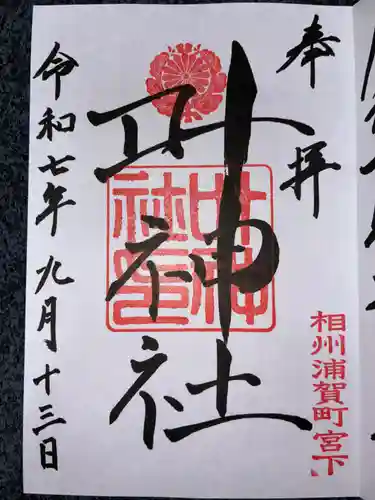 奉拝
相州浦賀町宮下
叶神社
叶神社印
令和七年九月十三日